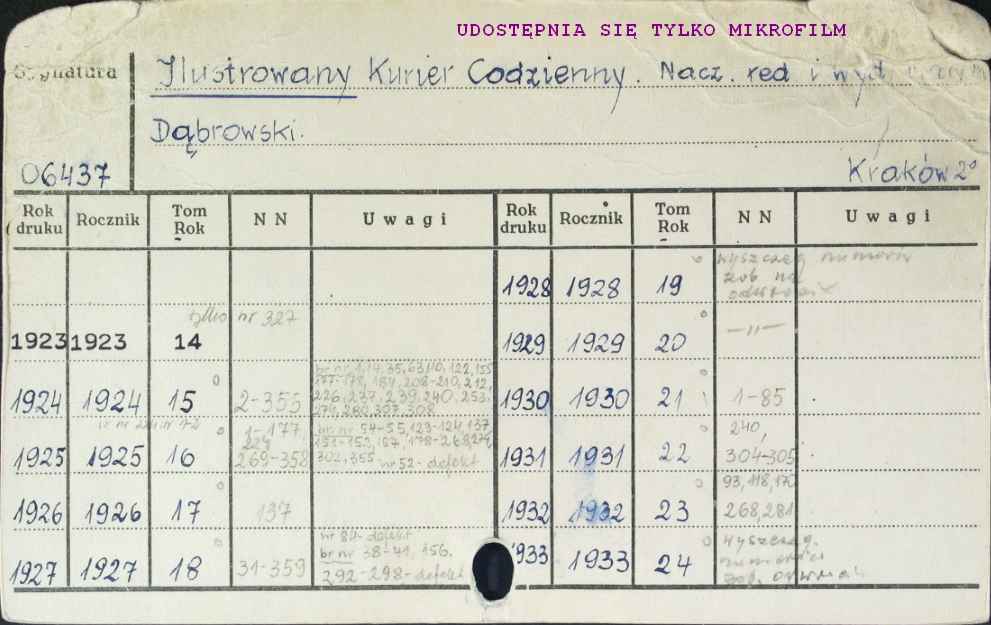 UDOSTĘPNIA SIĘ TYLKO MIKROFILM
Sygnatura
Ilustrowany Kurier Codzienny. Nacz. red i wyd.
Dąbrowski.
06437 Kraków 2°
Rok druku Rocznik Tom Rok NN Uwagi Rok druku Rocznik Tom Rok NN Uwagi
1928 1928 19 wyszczeg numerów zob na
tylko nr 327
1923 1923 14 1929 1929 20 —"—
1924 1924 15 2-355 br nr 1,14,35,63,110,122,155
208-210,212,
226,237,239,240,253
279,280,307,308 1930 1930 21 1-85
1925 1925 16 1-177
269-358 br nr 54-55,123-124,137
302,355 nr 52-defekt 1931 1931 22 240,
304-305
1926 1926 17 137 1932 1932 23 93,118,170
268,281
1927 1927 18 31-359 nr 84-defekt
br nr 38-41, 156.
292-298-defekt 1933 1933 24 wyszczeg.
numerów